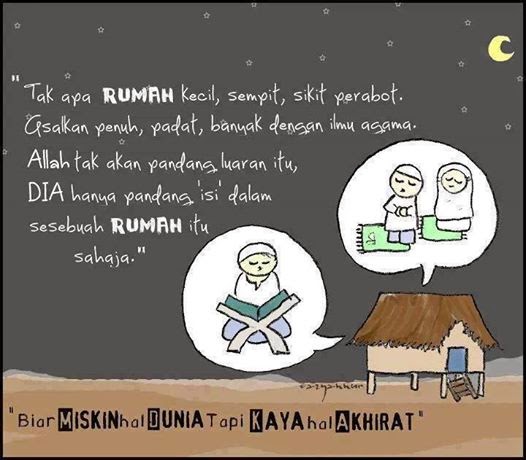 "Tak apa RUMAH kecil, sempit, sikit perabot.
Asalkan penuh, padat, banyak dengan ilmu agama.
Allah tak akan pandang luaran itu,
DIA hanya pandang 'isi' dalam
sesebuah RUMAH itu
sahaja."
"Biar MISKIN hal DUNIA Tapi KAYA hal AKHIRAT"